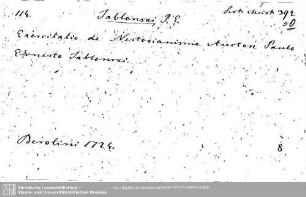 114. Jablonski P. E.
Exercitatio de Nestorianismo Auctore Paulo
Ernesto Jablonski.
Berolini 1724.
8
Sächsische Landesbibliothek -
Staats- und Universitätsbibliothek Dresden